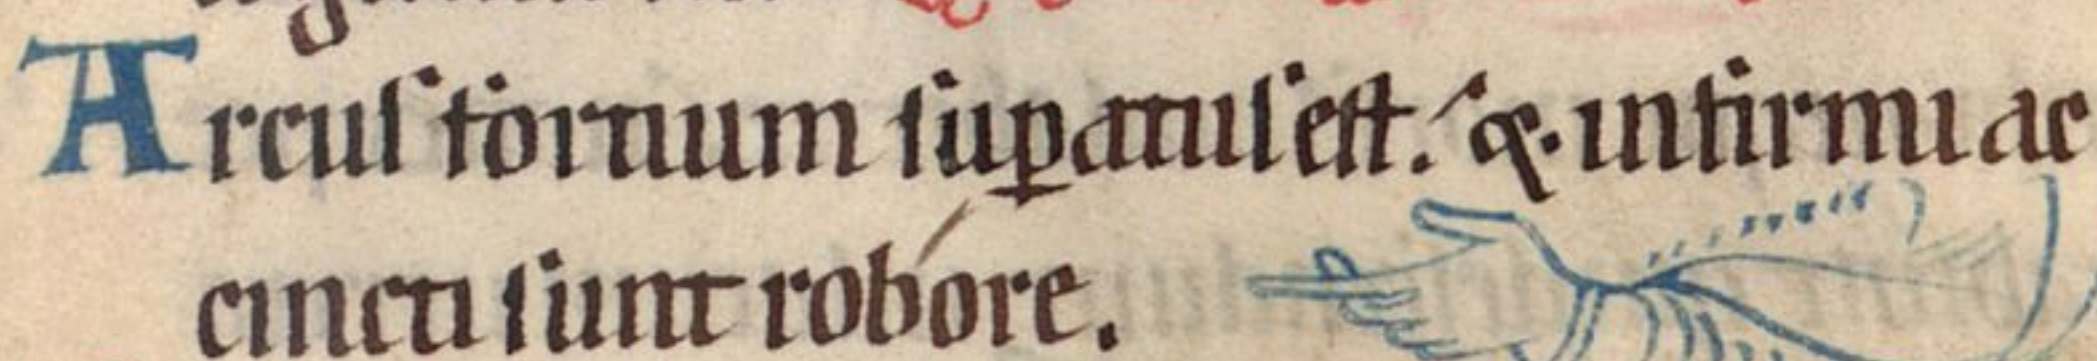 Arcus fortium supatus est. & infirmi ac
cincti sunt robore.